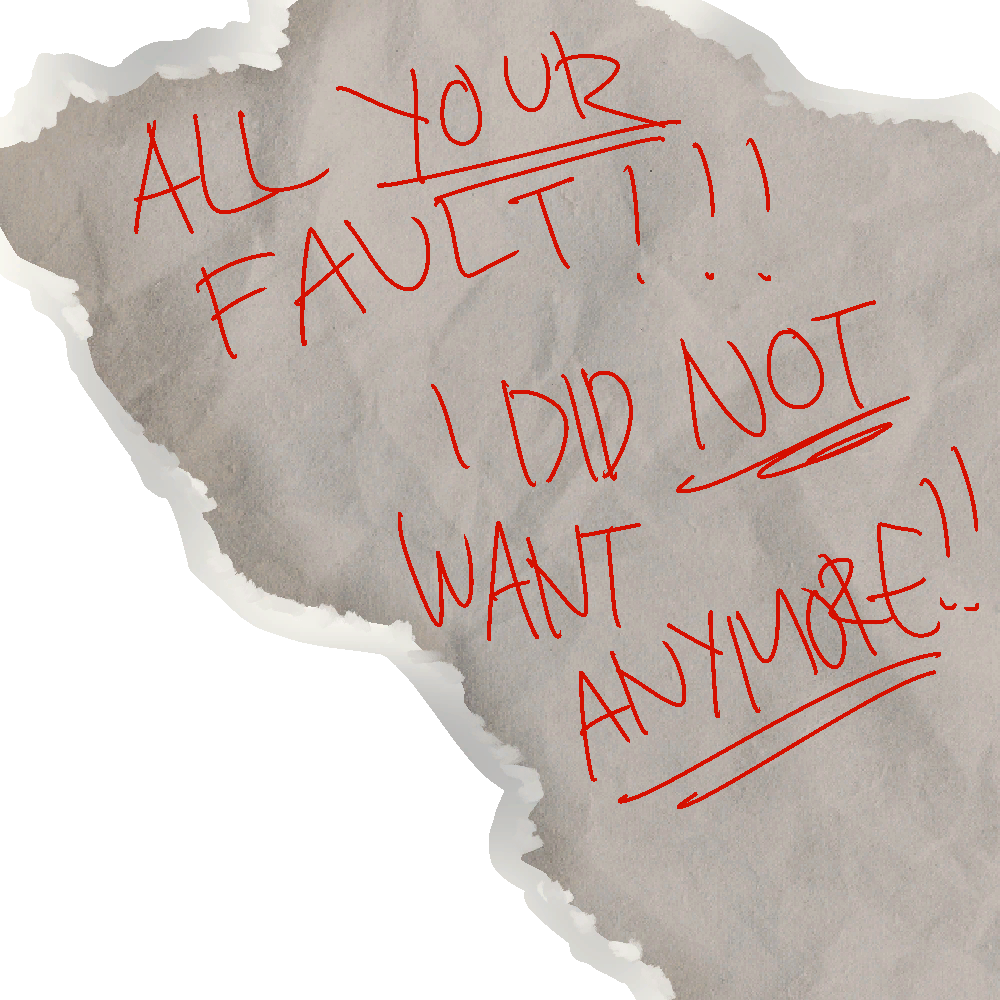 ALL YOUR
FAULT!!!
I DID NOT
WANT
ANYMORE!!